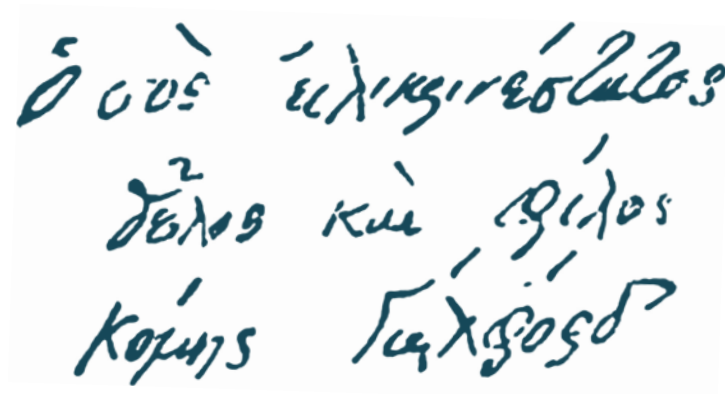 ὁ σὸς εἰλικρινέστατος
δοῦλος καὶ φίλος
Κόμης Γυίλφόρδ